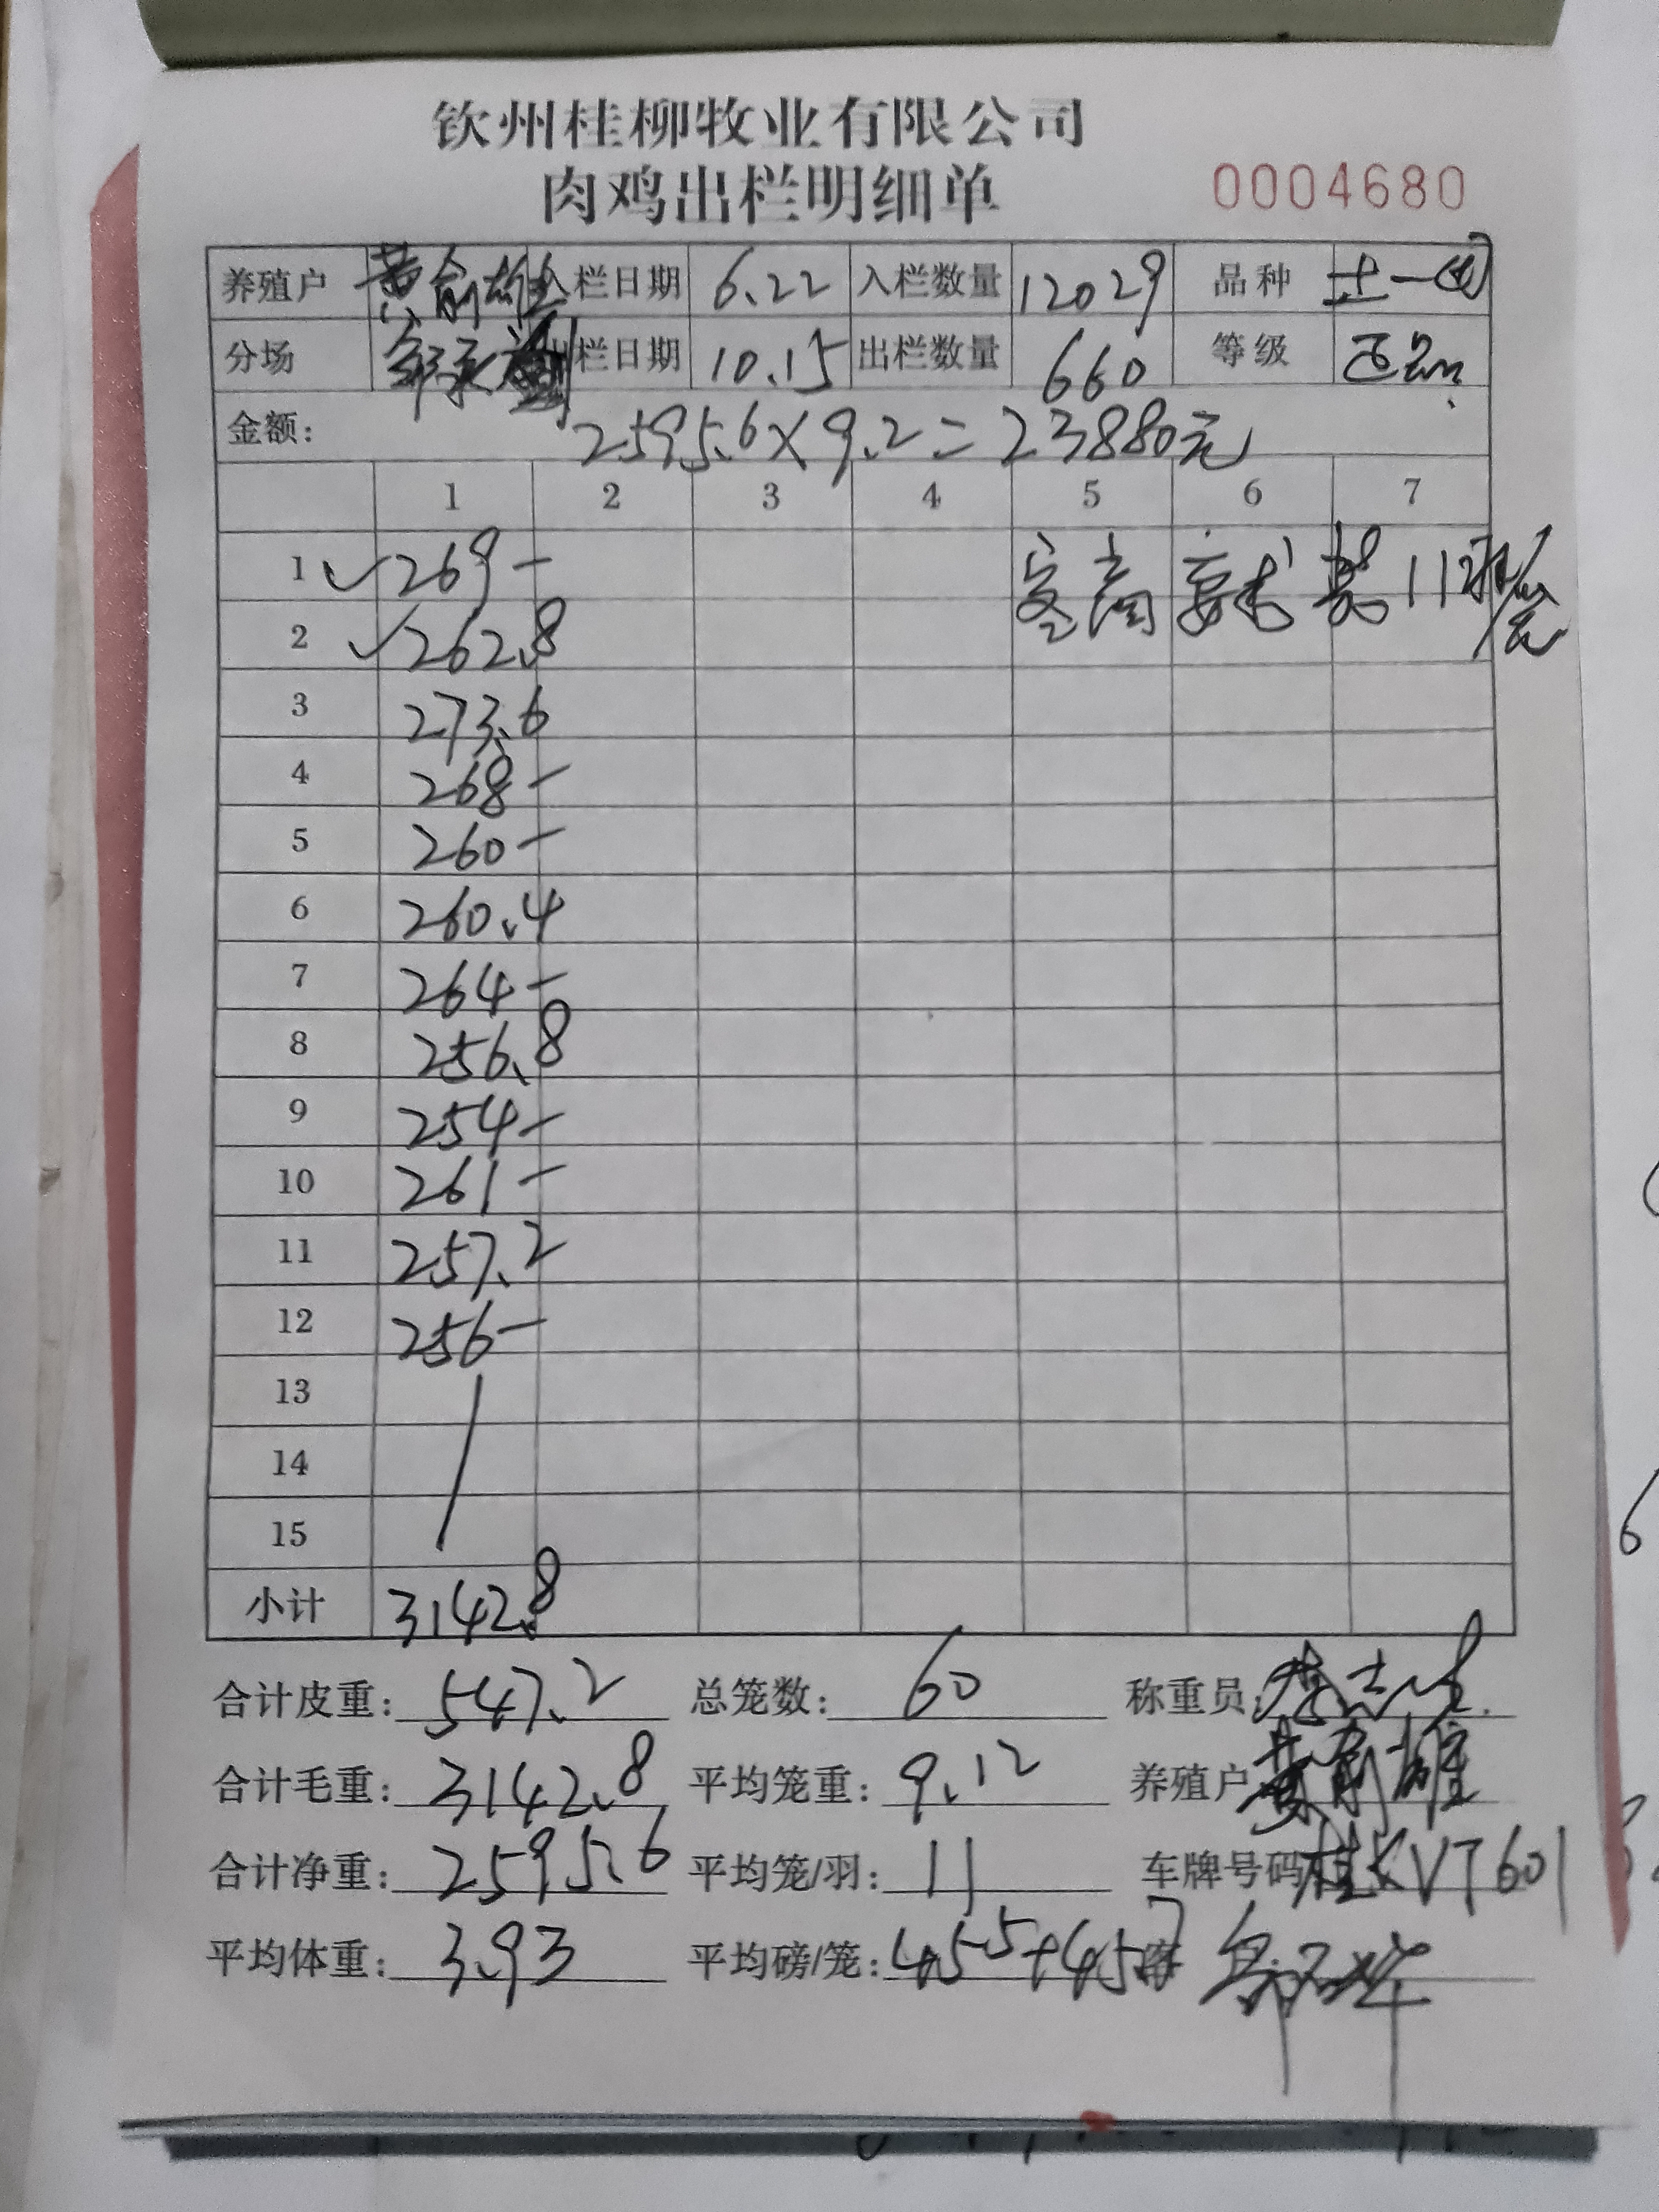 钦州桂柳牧业有限公司
肉鸡出栏明细单 0004680
养殖户 黄俞雄 入栏日期 6.22 入栏数量 12029 品种 土一
分场 出栏日期 10.15 出栏数量 660 等级 正品
金额: 2595.6×9.2=23880元
1 2 3 4 5 6 7
1 ✓ 269- 客商要求装11羽/笼
2 ✓ 262.8
3 273.6
4 268-
5 260-
6 260.4
7 264-
8 256.8
9 254-
10 261-
11 257.2
12 256-
13
14
15
小计 3142.8
合计皮重: 547.2 总笼数: 60 称重员:
合计毛重: 3142.8 平均笼重: 9.12 养殖户 黄俞雄
合计净重: 2595.6 平均笼/羽: 11 车牌号码 桂KVT601
平均体重: 3.93 平均磅/笼: 45.5+45.7